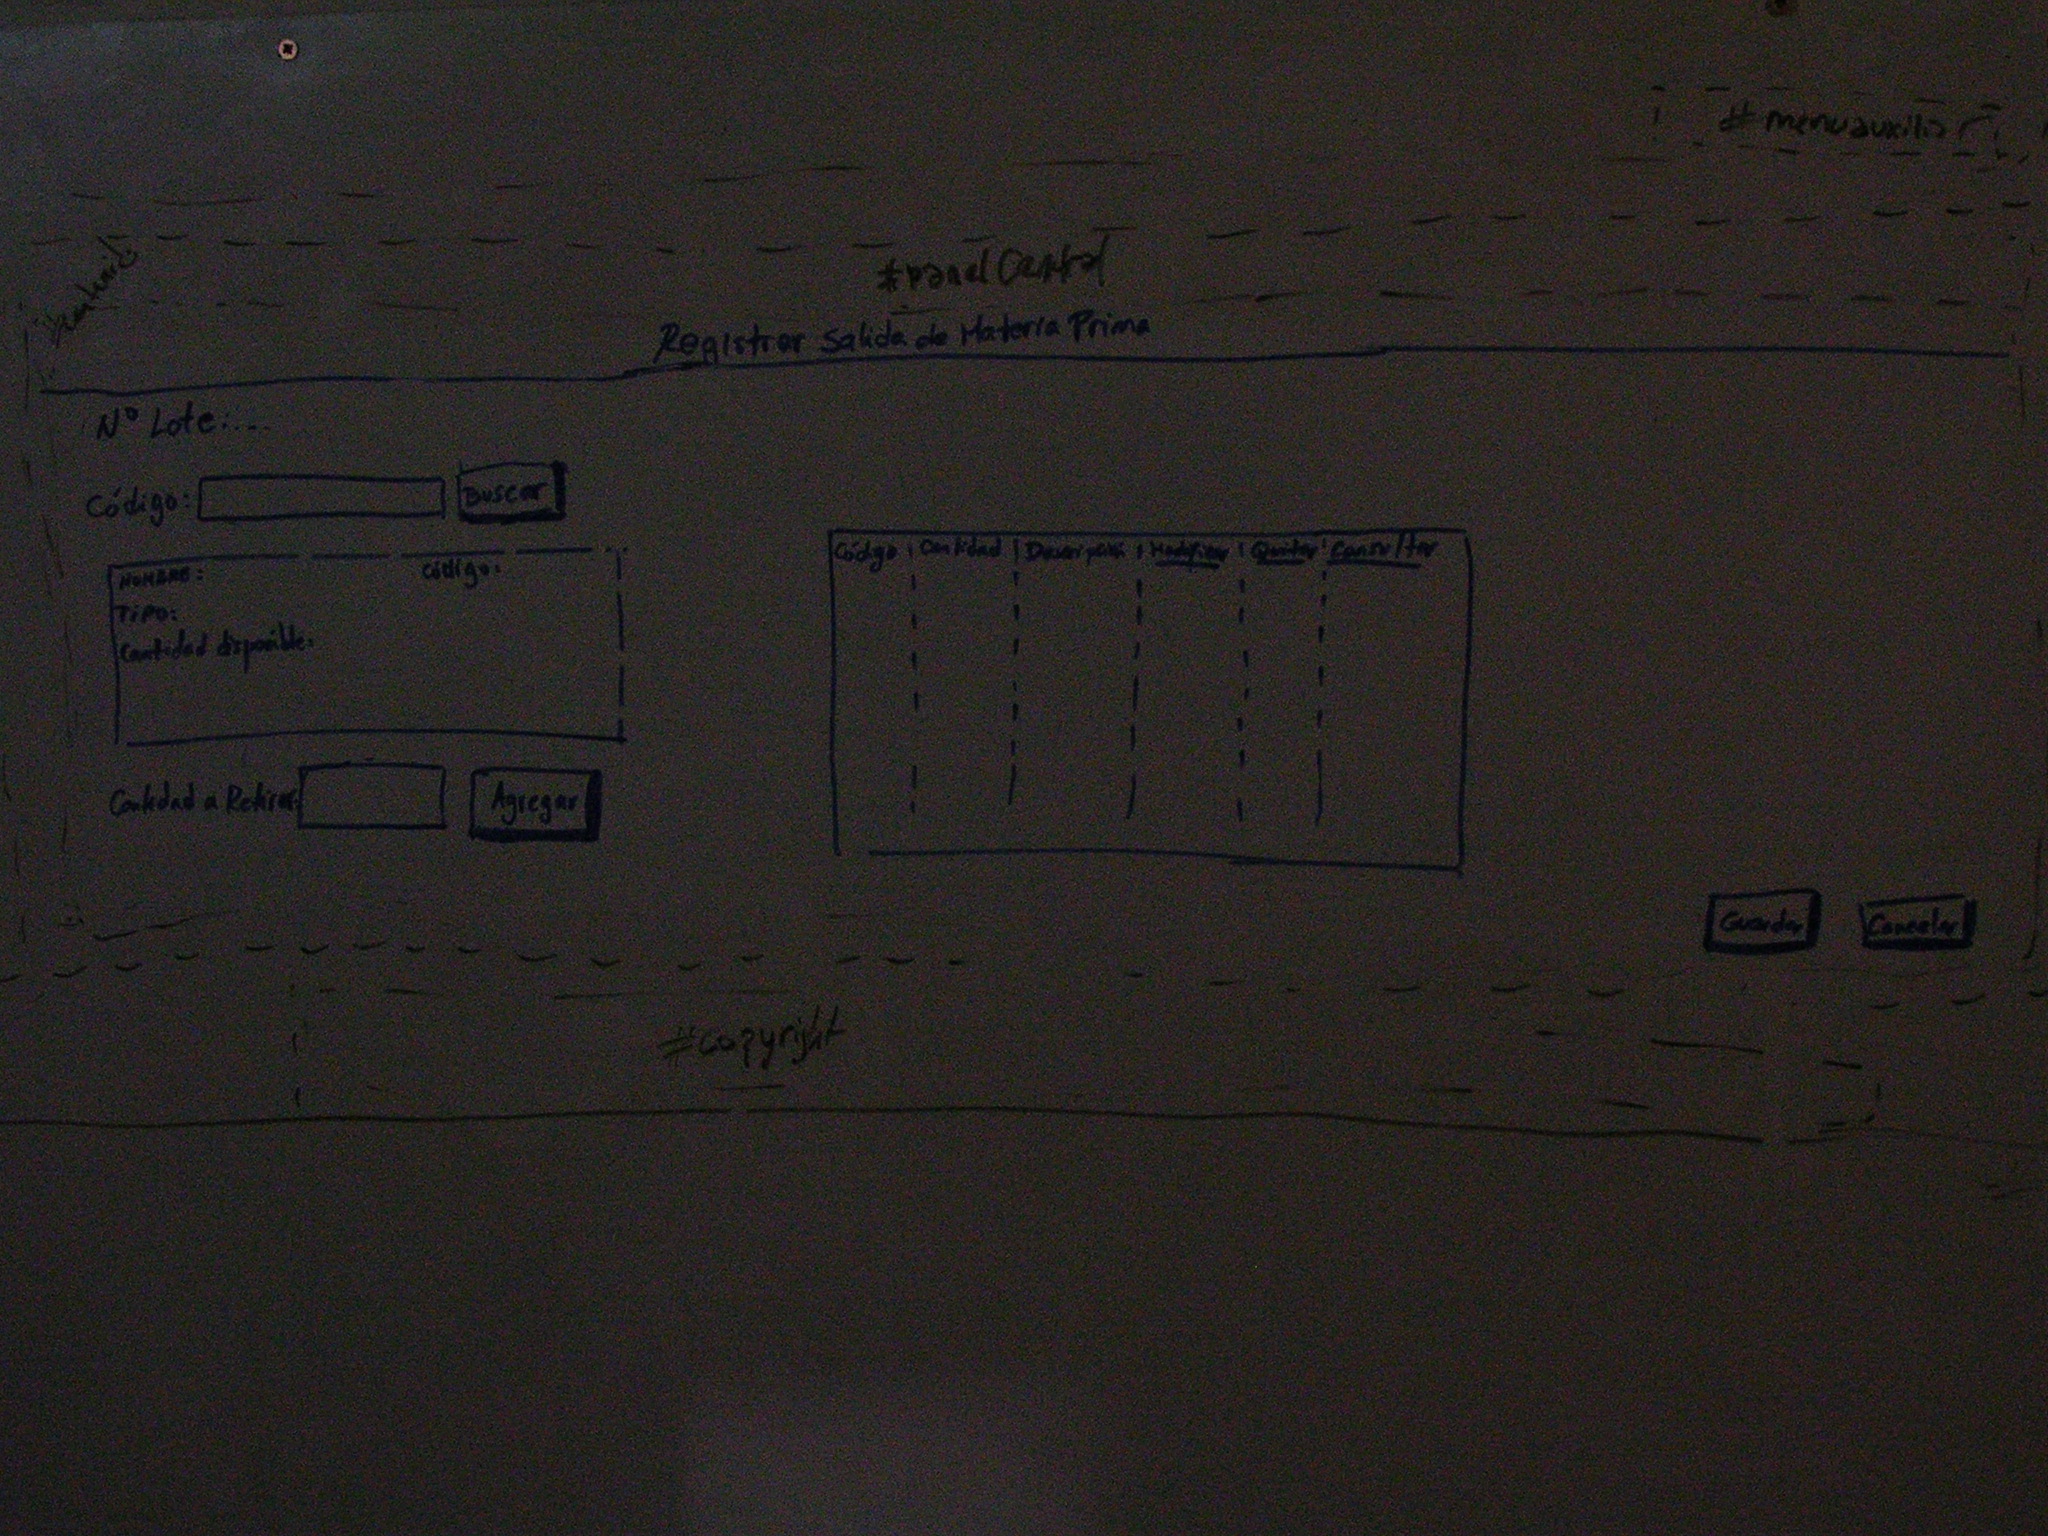 #menuauxiliar
#contenido
#panelCentral
Registrar Salida de Materia Prima
N° Lote:...
Código: Buscar
NOMBRE: Código:
TIPO:
Cantidad disponible:
Cantidad a Retirar: Agregar
Código Cantidad Descripción Modificar Quitar Consultar
Guardar Cancelar
#copyright